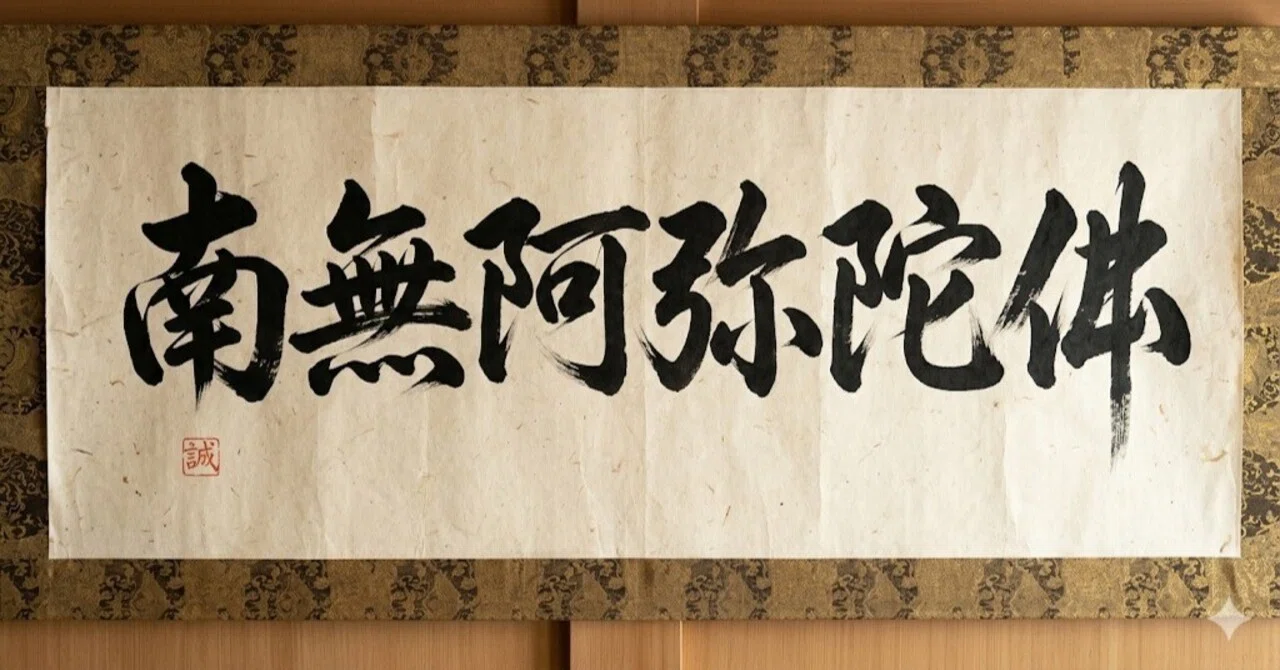 南無阿弥陀佛
誠